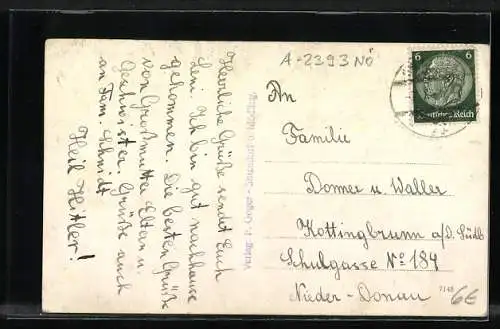 A-2393 NÖ
Herzliche Grüße sendet Euch
Leni. Ich bin gut nachhause
gekommen. Die besten Grüße
von Großmutter Eltern u.
Geschwister. Grüße auch
an Fam. Schmidt
Heil Hitler!
An
Familie
Donner u. Waller
Kottingbrunn a/d. Südb
Schulgasse No 184
Nieder-Donau
6 6
Deutsches Reich
7148
6E